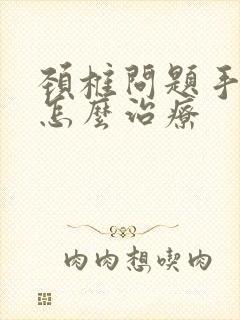 頚椎問題手
怎麼治療
肉肉想喫肉